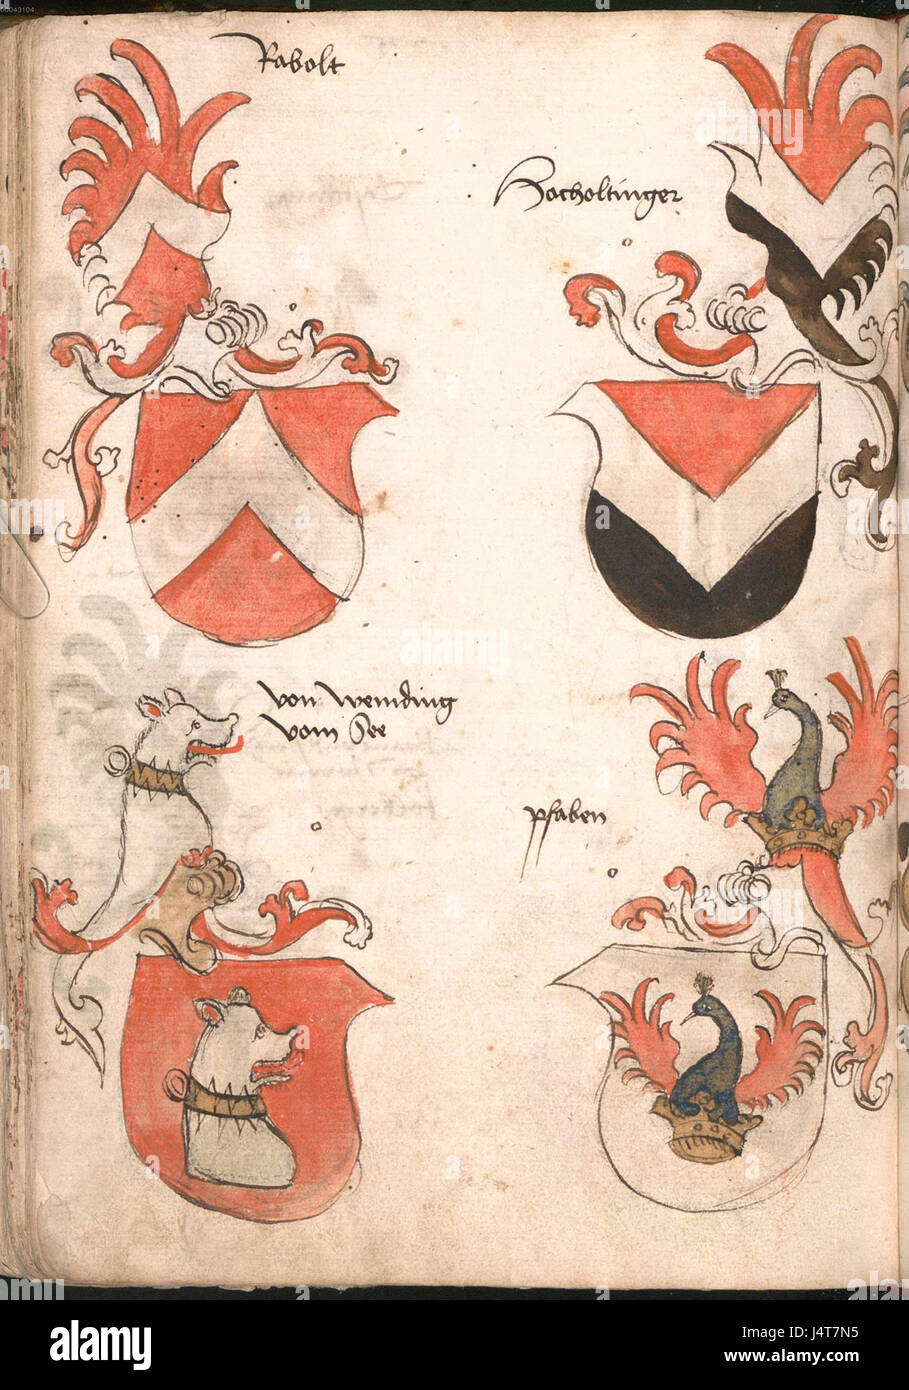 00043104
Rabolt
Hocholtinger
von Wemding
vom See
pfaben
alamy
Image ID: J4T7N5
www.alamy.com